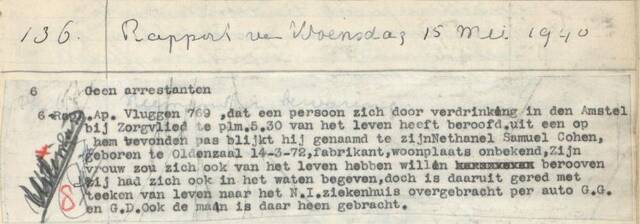 136. Rapport van Woensdag 15 Mei 1940
6 Geen arrestanten
6 Rapp.Ap. Vluggen 769 ,dat een persoon zich door verdrinking in den Amstel
bij Zorgvlied te plm.5.30 van het leven heeft beroofd,uit een op
hem wevonden pas blijkt hij genaamd te zijnNethanel Samuel Cohen,
geboren te Oldenzaal 14-3-72,fabrikant,woonplaats onbekend,Zijn
vrouw zou zich ook van het leven hebben willen berooven
zij had zich ook in het waten begeven,doch is daaruit gered met
teeken van leven naar het N.I.ziekenhuis overgebracht per auto G.G.
en G.D.Ook de maan is daar heen gebracht.
8